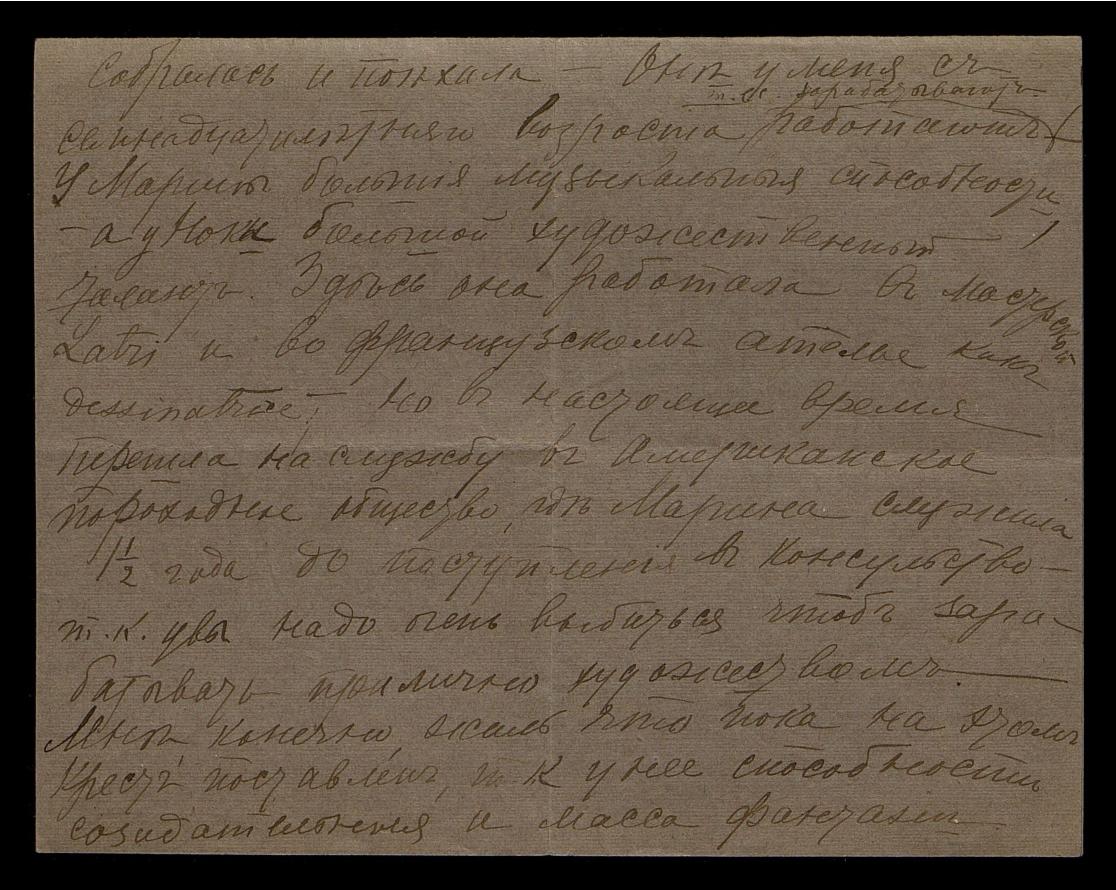 собралась и поѣхала — Онѣ у меня съ
т.е. зарабатываютъ
семнадцатилѣтняго возроста работаютъ
У Марины большія музыкальныя способности
– а у Ноки большой художественный
талантъ. Здѣсь она работала въ мастерской
Latri и во французскомъ ателье какъ
dessinatrice; но въ настоящее время
перешла на службу въ Американское
пороходное общество, гдѣ Марина служила
1 1/2 года до поступленія въ консульство –
т.к. увы надо очень выбиться чтобъ зара-
батывать прилично художествомъ.
Мнѣ конечно, жаль что пока на этомъ
крестъ поставленъ, т к у нее способности
созидательныя и масса фантазіи